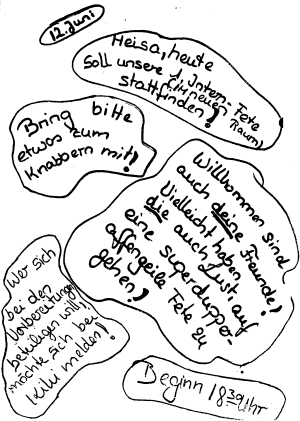 12. Juni
Heisa, heute
soll unsere 1. Intern-Fete
im neuen Raum
stattfinden!
Bring bitte
etwas zum
Knabbern mit!
Willkommen sind
auch deine Freunde!
Vielleicht haben
die auch Lust, auf
eine superdupper-
affengeile Fete zu
gehen!
Wer sich
bei den
Vorbereitungen
beteiligen will,
möchte sich bei
Kiki melden!
Beginn 18 30 Uhr